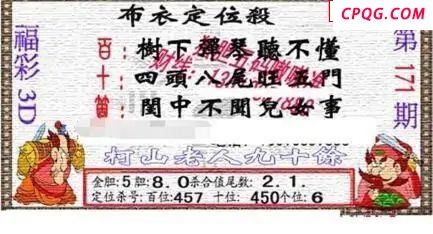 CPQG.COM
布衣定位殺
福彩3D
第171期
百:樹下彈琴聽不懂
十:四頭八尾旺五門
個:閨中不聞兒女事
柯山老人九十條
金胆:5胆:8.0杀合值尾数:2.1.
定位杀号:百位:457 十位:450个位:6